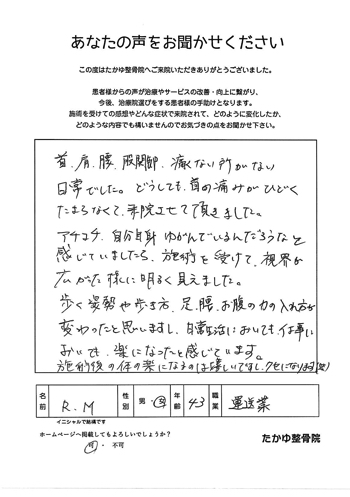 あなたの声をお聞かせください
この度はたかゆ整骨院へご来院いただきありがとうございました。
患者様からの声が治療やサービスの改善・向上に繋がり、
今後、治療院選びをする患者様の手助けとなります。
施術を受けての感想やどんな症状で来院されて、どのように変化したか、
どのような内容でも構いませんのでお気づきの点をお聞かせ下さい。
首、肩、腰、股関節、痛くない所がない
日常でした。どうしても、首の痛みがひどく
たまらなくて、来院させて頂きました。
アチコチ、自分自身 ゆがんでいるんだろうなと
感じていましたら、施術を受けて、視界が
広がた様に明るく見えました。
歩く姿勢や歩き方、足、腰、お腹の力の入れ方が
変わったと思いますし、日常生活においても仕事に
おいても、楽になったと感じています。
施術後の体の楽になるのは嬉しいですし、クセになります(笑)
名前 R.M 性別 男・女 年齢 43 職業 運送業
イニシャルで結構です
ホームページへ掲載してもよろしいでしょうか?
可・不可
たかゆ整骨院